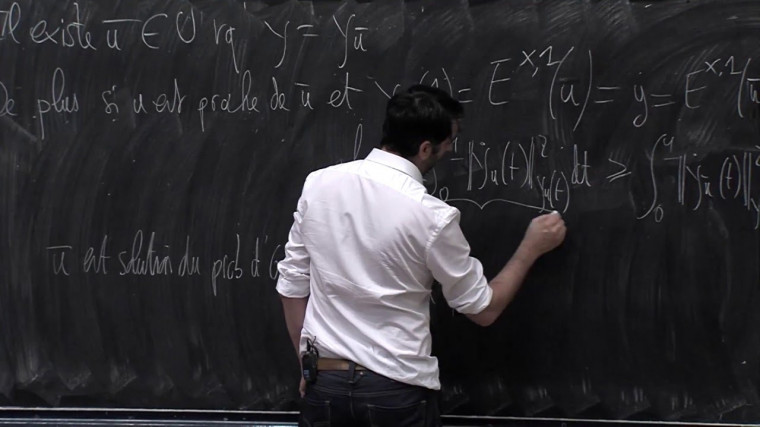 Il existe ū ∈ U tq y = y_ū
De plus si u est proche de ū et y (1) = E^{X,1}(u) = y = E^{X,1}(ū
1/2 ‖ẏ_u(t)‖²_{y_u(t)} dt ≥ ∫_0^1 1/2 ‖ẏ_ū(t)‖²_y
ū est solution du prob d'